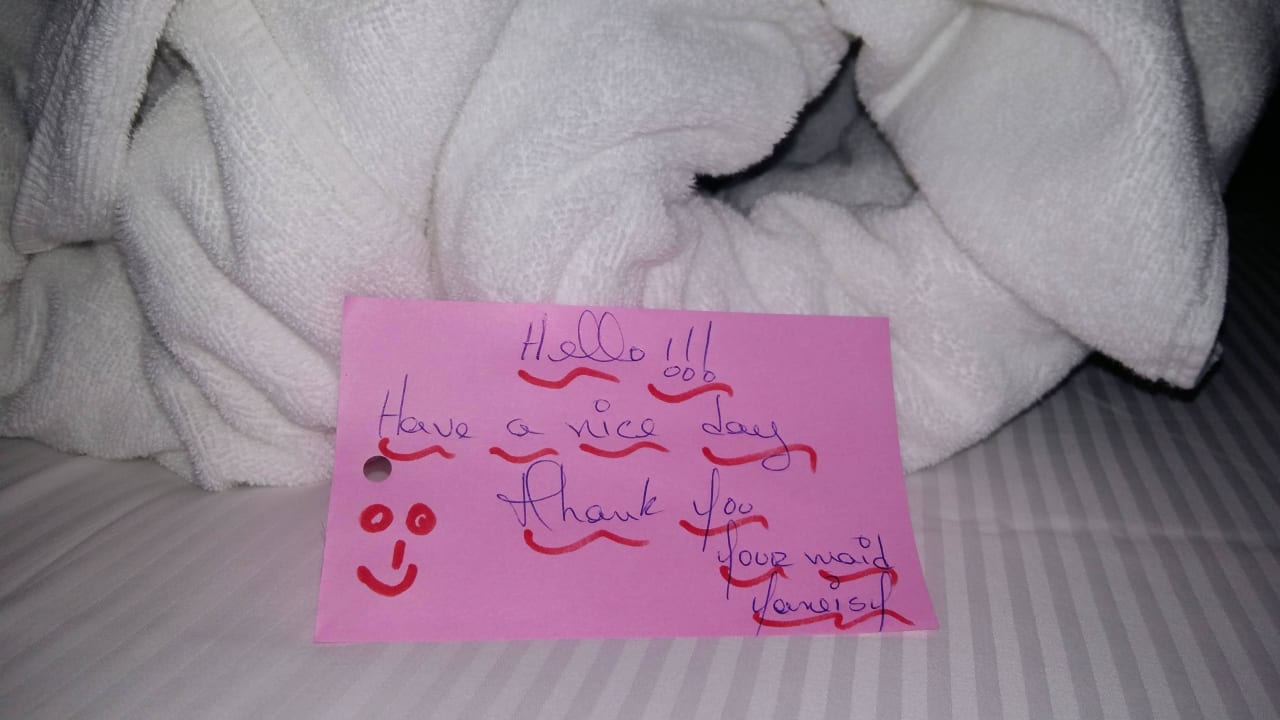 Hello !!!
Have a nice day
Thank you
your maid
Yaneisy